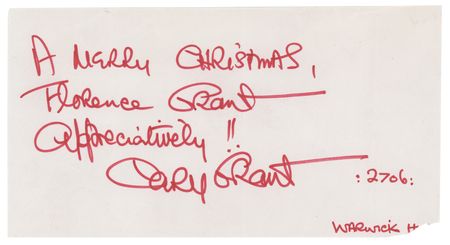 A Merry Christmas,
Florence Grant
Appreciatively!!
Cary Grant :2706:
WARWICK H